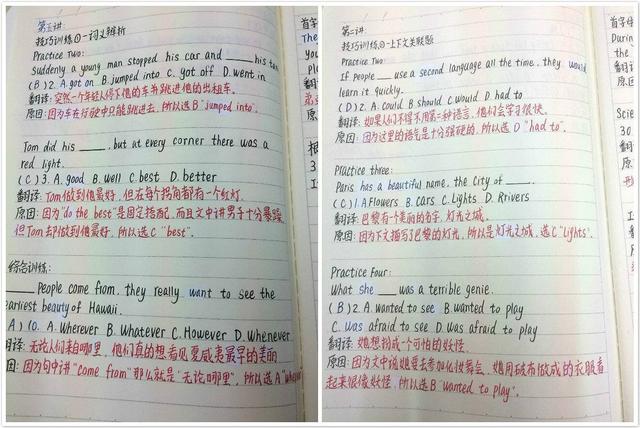 第五讲
技巧训练①—词义辨析
Practice Two:
Suddenly a young man stopped his car and ____ his ten
(B) 2. A. got on B. jumped into C. got off D. went in
翻译: 突然一个年轻人停下他的车并跳进他的出租车.
原因: 因为车在行驶中只能跳进去, 所以选B "jumped into".
Tom did his ____, but at every corner there was a
red light.
(C) 3. A. good B. well C. best D. better
翻译: Tom做到他最好, 但在每个拐角都有一个红灯.
原因: 因为"do the best"是固定搭配, 而且文中讲男子十分暴躁,
但Tom却做到他最好, 所以选C "best".
综合训练:
____ People come from, they really want to see the
earliest beauty of Hawaii.
A) 10. A. Wherever B. Whatever C. However D. Whenever
翻译: 无论人们来自哪里, 他们真的想看见夏威夷最早的美丽
原因: 因为句中讲"come from"那么就是"无论哪里", 所以选A
第二讲:
技巧训练②—上下文关联题
Practice Two:
If People ____ use a second language all the time, they would
learn it quickly.
(D) 2. A. Could B. should C. would D. had to
翻译: 如果人们不得不用第二种语言, 他们会学习很快.
原因: 因为这里的语气是十分强硬的, 所以选 D "had to".
Practice three:
Paris has a beautiful name, the City of ____.
(C) 1. A. Flowers B. Cars C. Lights D. Rrivers
翻译: 巴黎有个美丽的名字, 灯光之城.
原因: 因为下文描写了巴黎的灯光, 所以是灯光之城, 选C "Lights".
Practice Four:
What she ____ was a terrible genie.
(B) 2. A. wanted to see B. wanted to play
C. was afraid to see D. was afraid to play
翻译: 她想扮成一个可怕的妖怪.
原因: 因为文中说她要去参加化妆舞会, 她用破布做成的衣服看
起来很像妖怪, 所以选B "wanted to play".